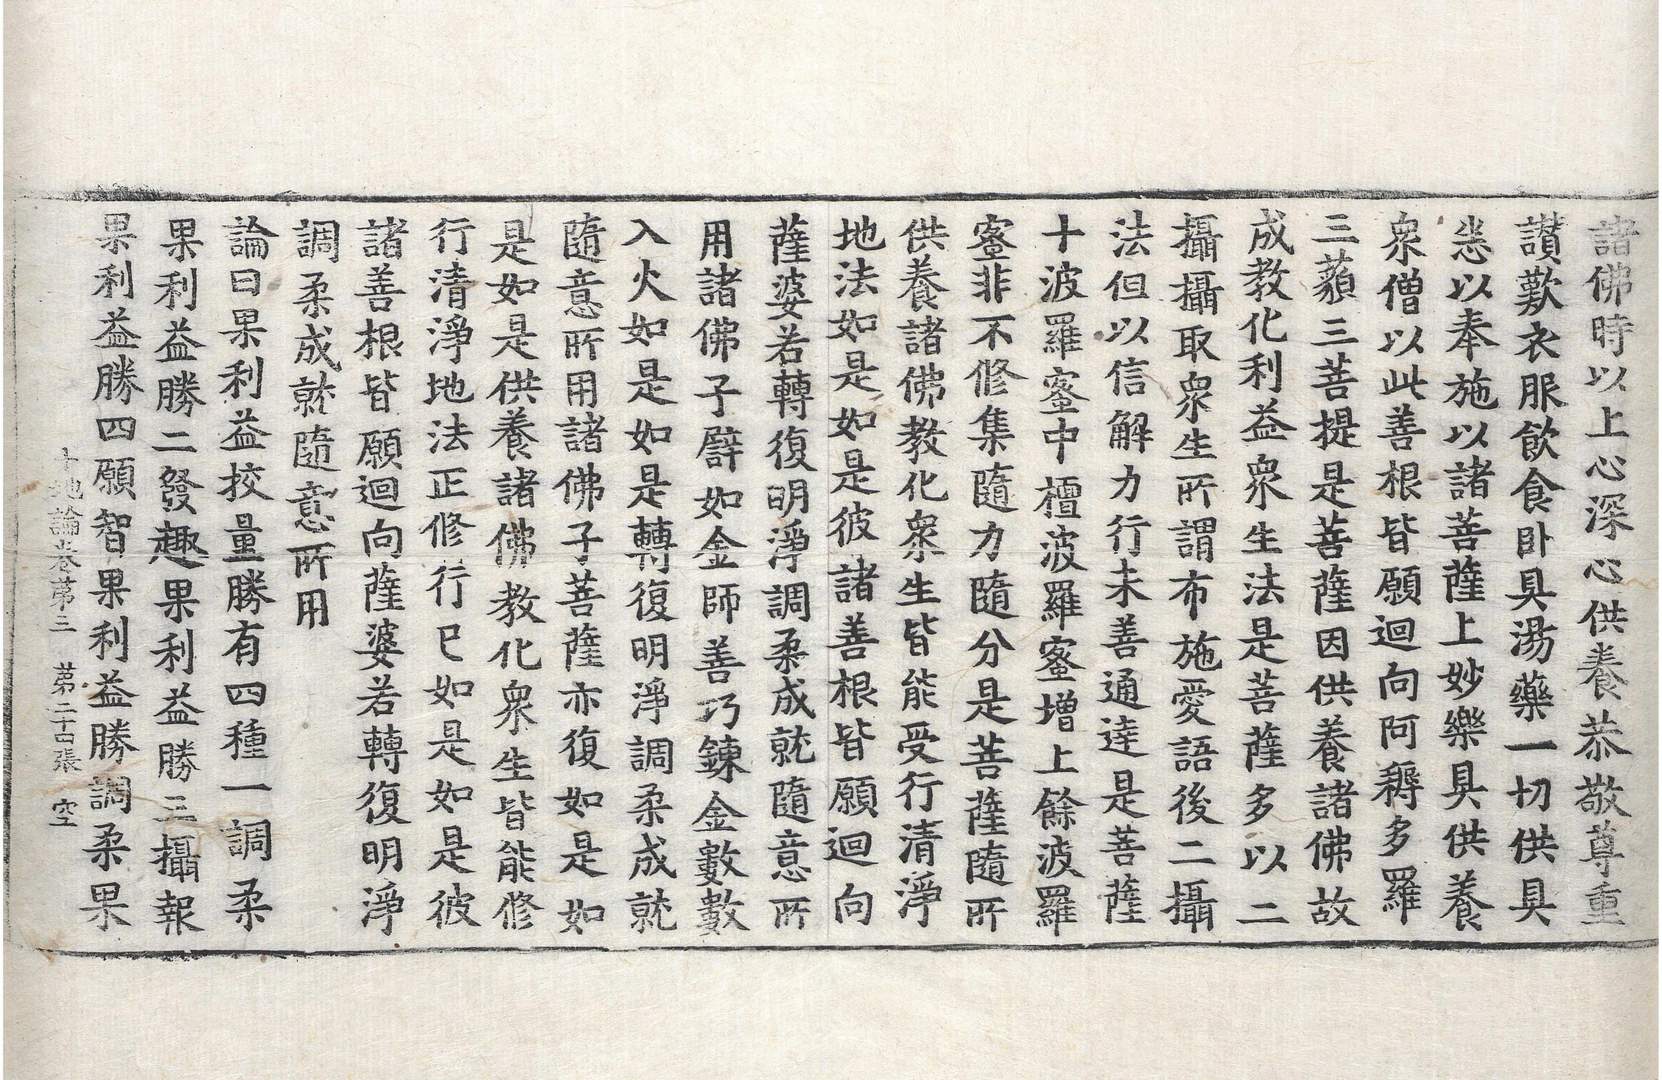 諸佛時以上心深心供養恭敬尊重
讃歎衣服飲食卧具湯藥一切供具
悉以奉施以諸菩薩上妙樂具供養
衆僧以此善根皆願迴向阿耨多羅
三藐三菩提是菩薩因供養諸佛故
成教化利益衆生法是菩薩多以二
攝攝取衆生所謂布施愛語後二攝
法但以信解力行未善通達是菩薩
十波羅蜜中檀波羅蜜增上餘波羅
蜜非不修集隨力隨分是菩薩隨所
供養諸佛教化衆生皆能受行清淨
地法如是如是彼諸善根皆願迴向
薩婆若轉復明淨調柔成就隨意所
用諸佛子譬如金師善巧鍊金數數
入火如是如是轉復明淨調柔成就
隨意所用諸佛子菩薩亦復如是如
是如是供養諸佛教化衆生皆能修
行清淨地法正修行已如是如是彼
諸善根皆願迴向薩婆若轉復明淨
調柔成就隨意所用
論曰果利益挍量勝有四種一調柔
果利益勝二發趣果利益勝三攝報
果利益勝四願智果利益勝調柔果
十地論卷第三 第二十四張 空